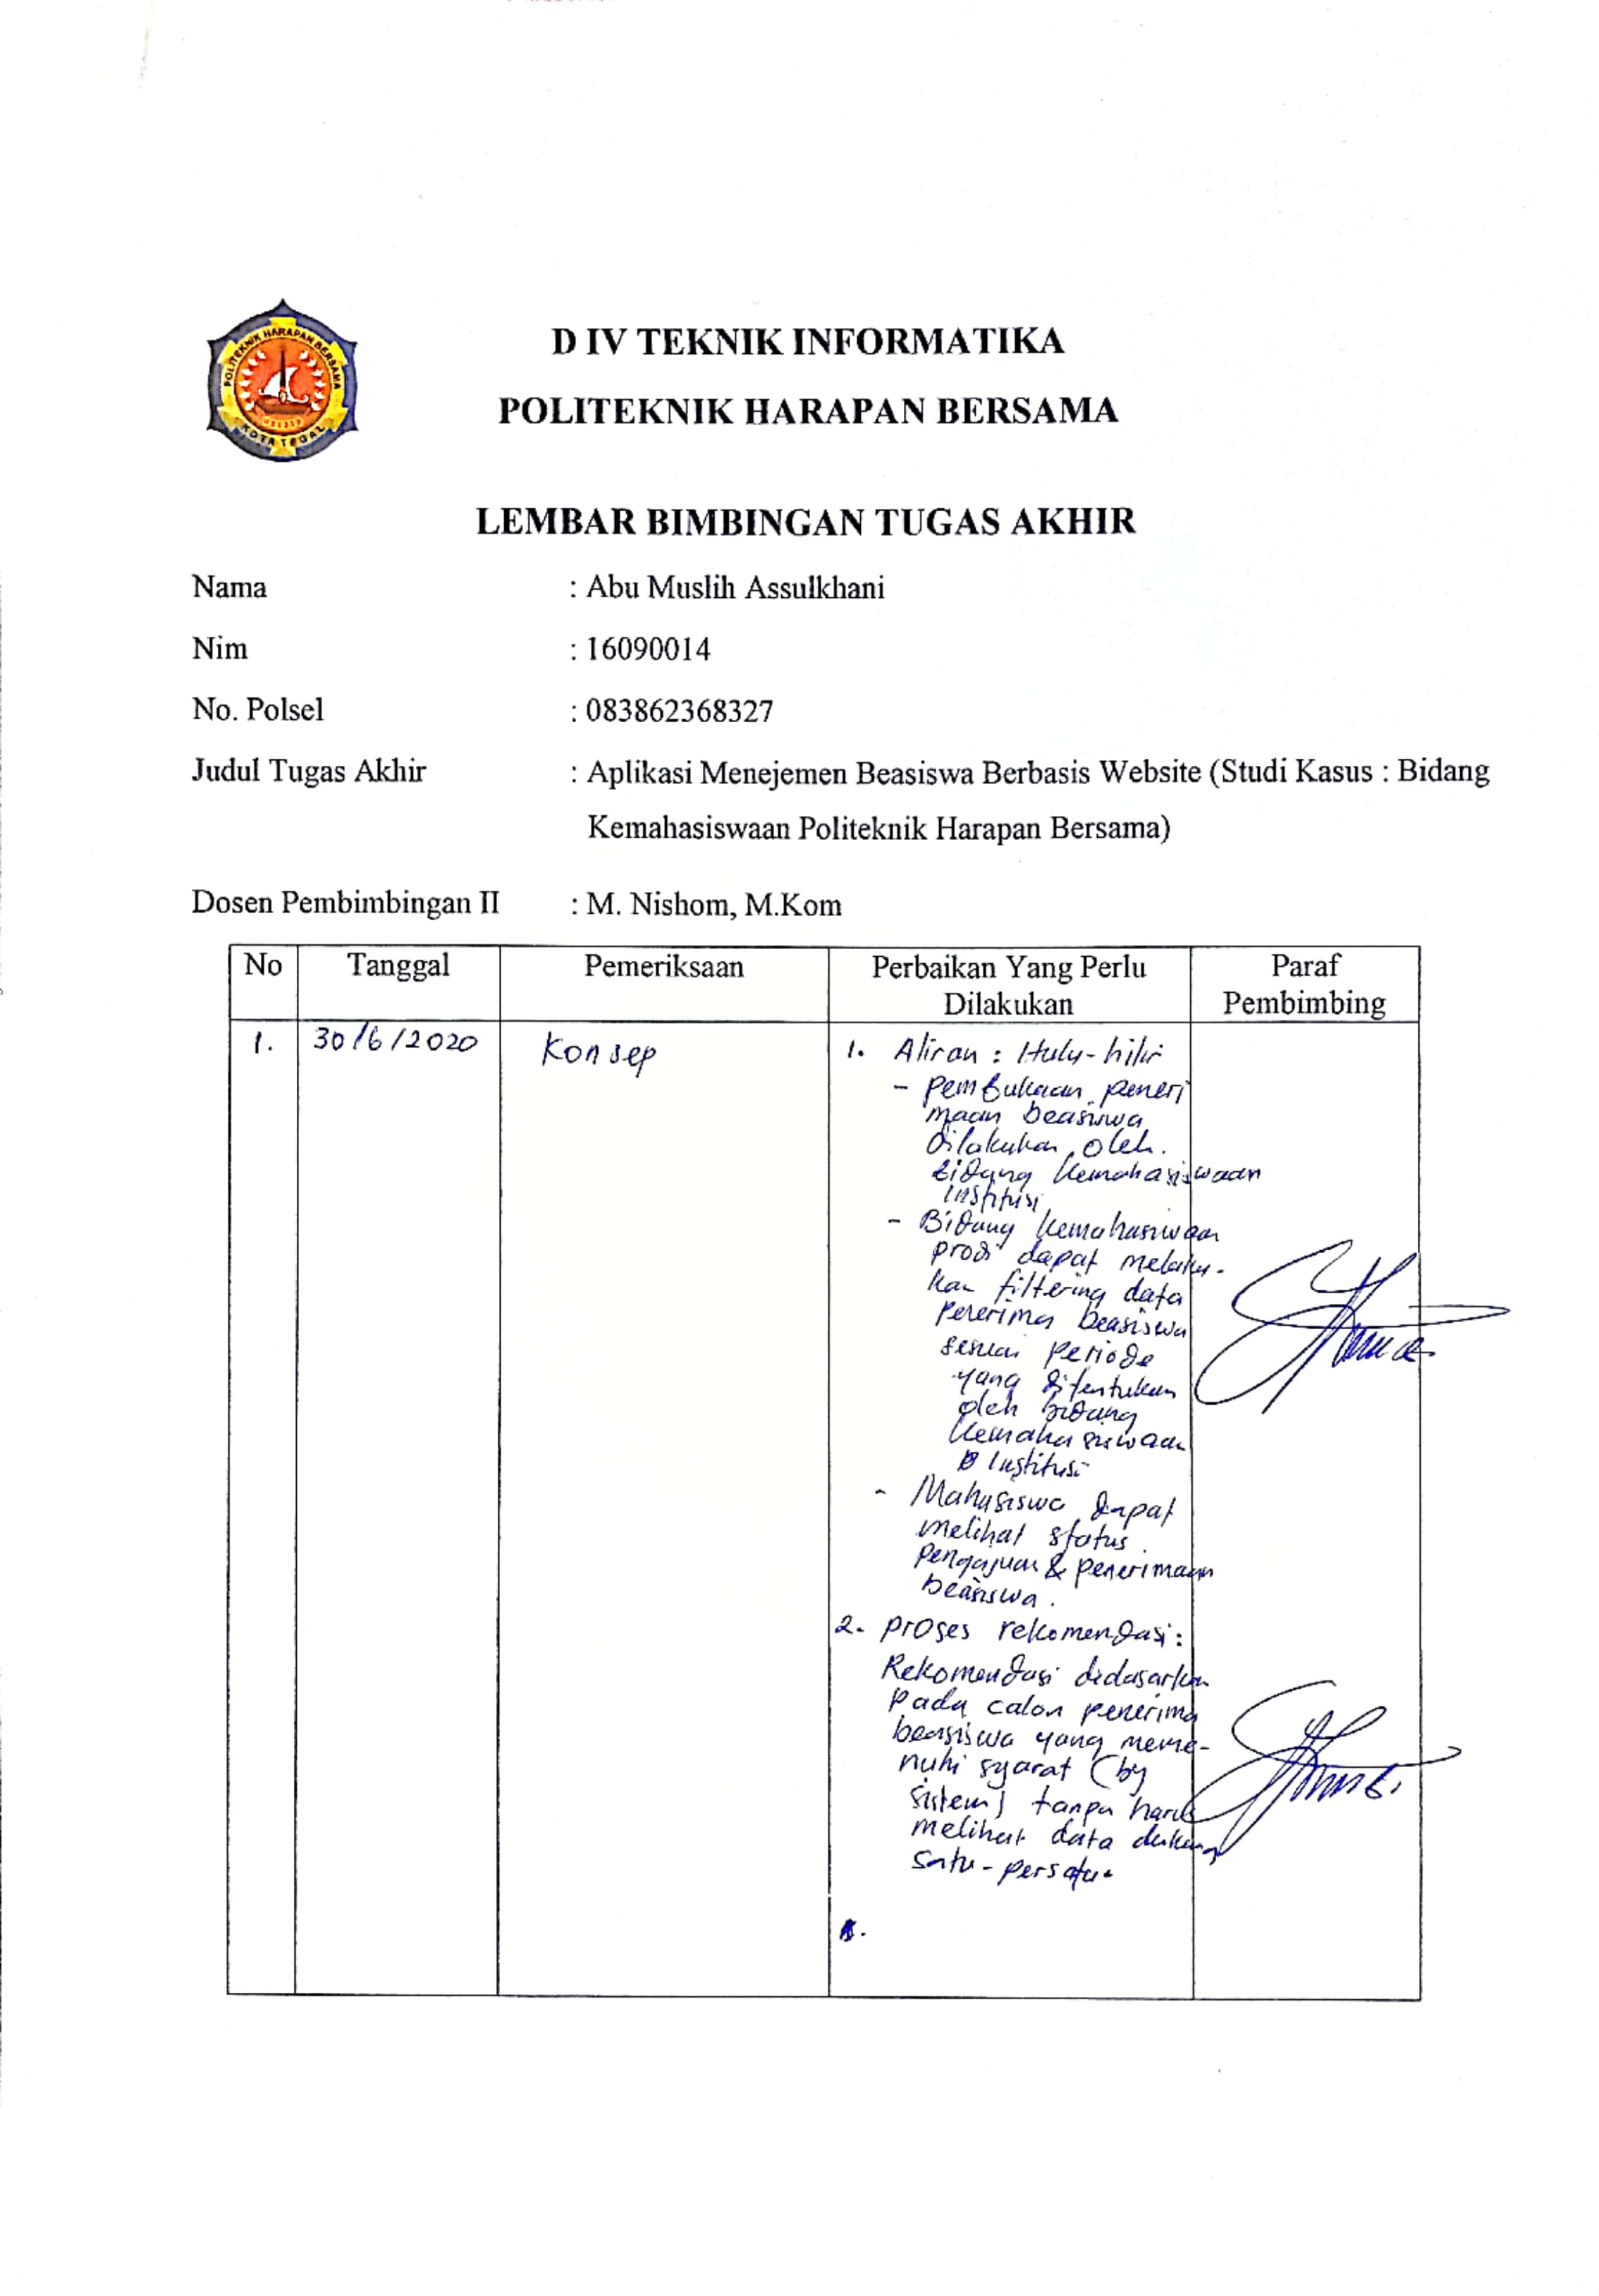 POLITEKNIK HARAPAN BERSAMA
KOTA TEGAL
D IV TEKNIK INFORMATIKA
POLITEKNIK HARAPAN BERSAMA
LEMBAR BIMBINGAN TUGAS AKHIR
Nama : Abu Muslih Assulkhani
Nim : 16090014
No. Polsel : 083862368327
Judul Tugas Akhir : Aplikasi Menejemen Beasiswa Berbasis Website (Studi Kasus : Bidang
Kemahasiswaan Politeknik Harapan Bersama)
Dosen Pembimbingan II : M. Nishom, M.Kom
No Tanggal Pemeriksaan Perbaikan Yang Perlu Dilakukan Paraf Pembimbing
1. 30/6/2020 Konsep 1. Aliran : Hulu-hilir
- Pembukaan peneri
maan beasiswa
dilakukan oleh
bidang kemahasiswaan
Institusi
- Bidang kemahasiswaan
prodi dapat melaku-
kan filtering data
penerima beasiswa
sesuai periode
yang ditentukan
oleh bidang
kemahasiswaan
Institusi
- Mahasiswa dapat
melihat status
pengajuan & penerimaan
beasiswa.
2. Proses rekomendasi:
Rekomendasi didasarkan
pada calon penerima
beasiswa yang meme-
nuhi syarat (by
sistem) tanpa harus
melihat data dukung
satu-persatu.